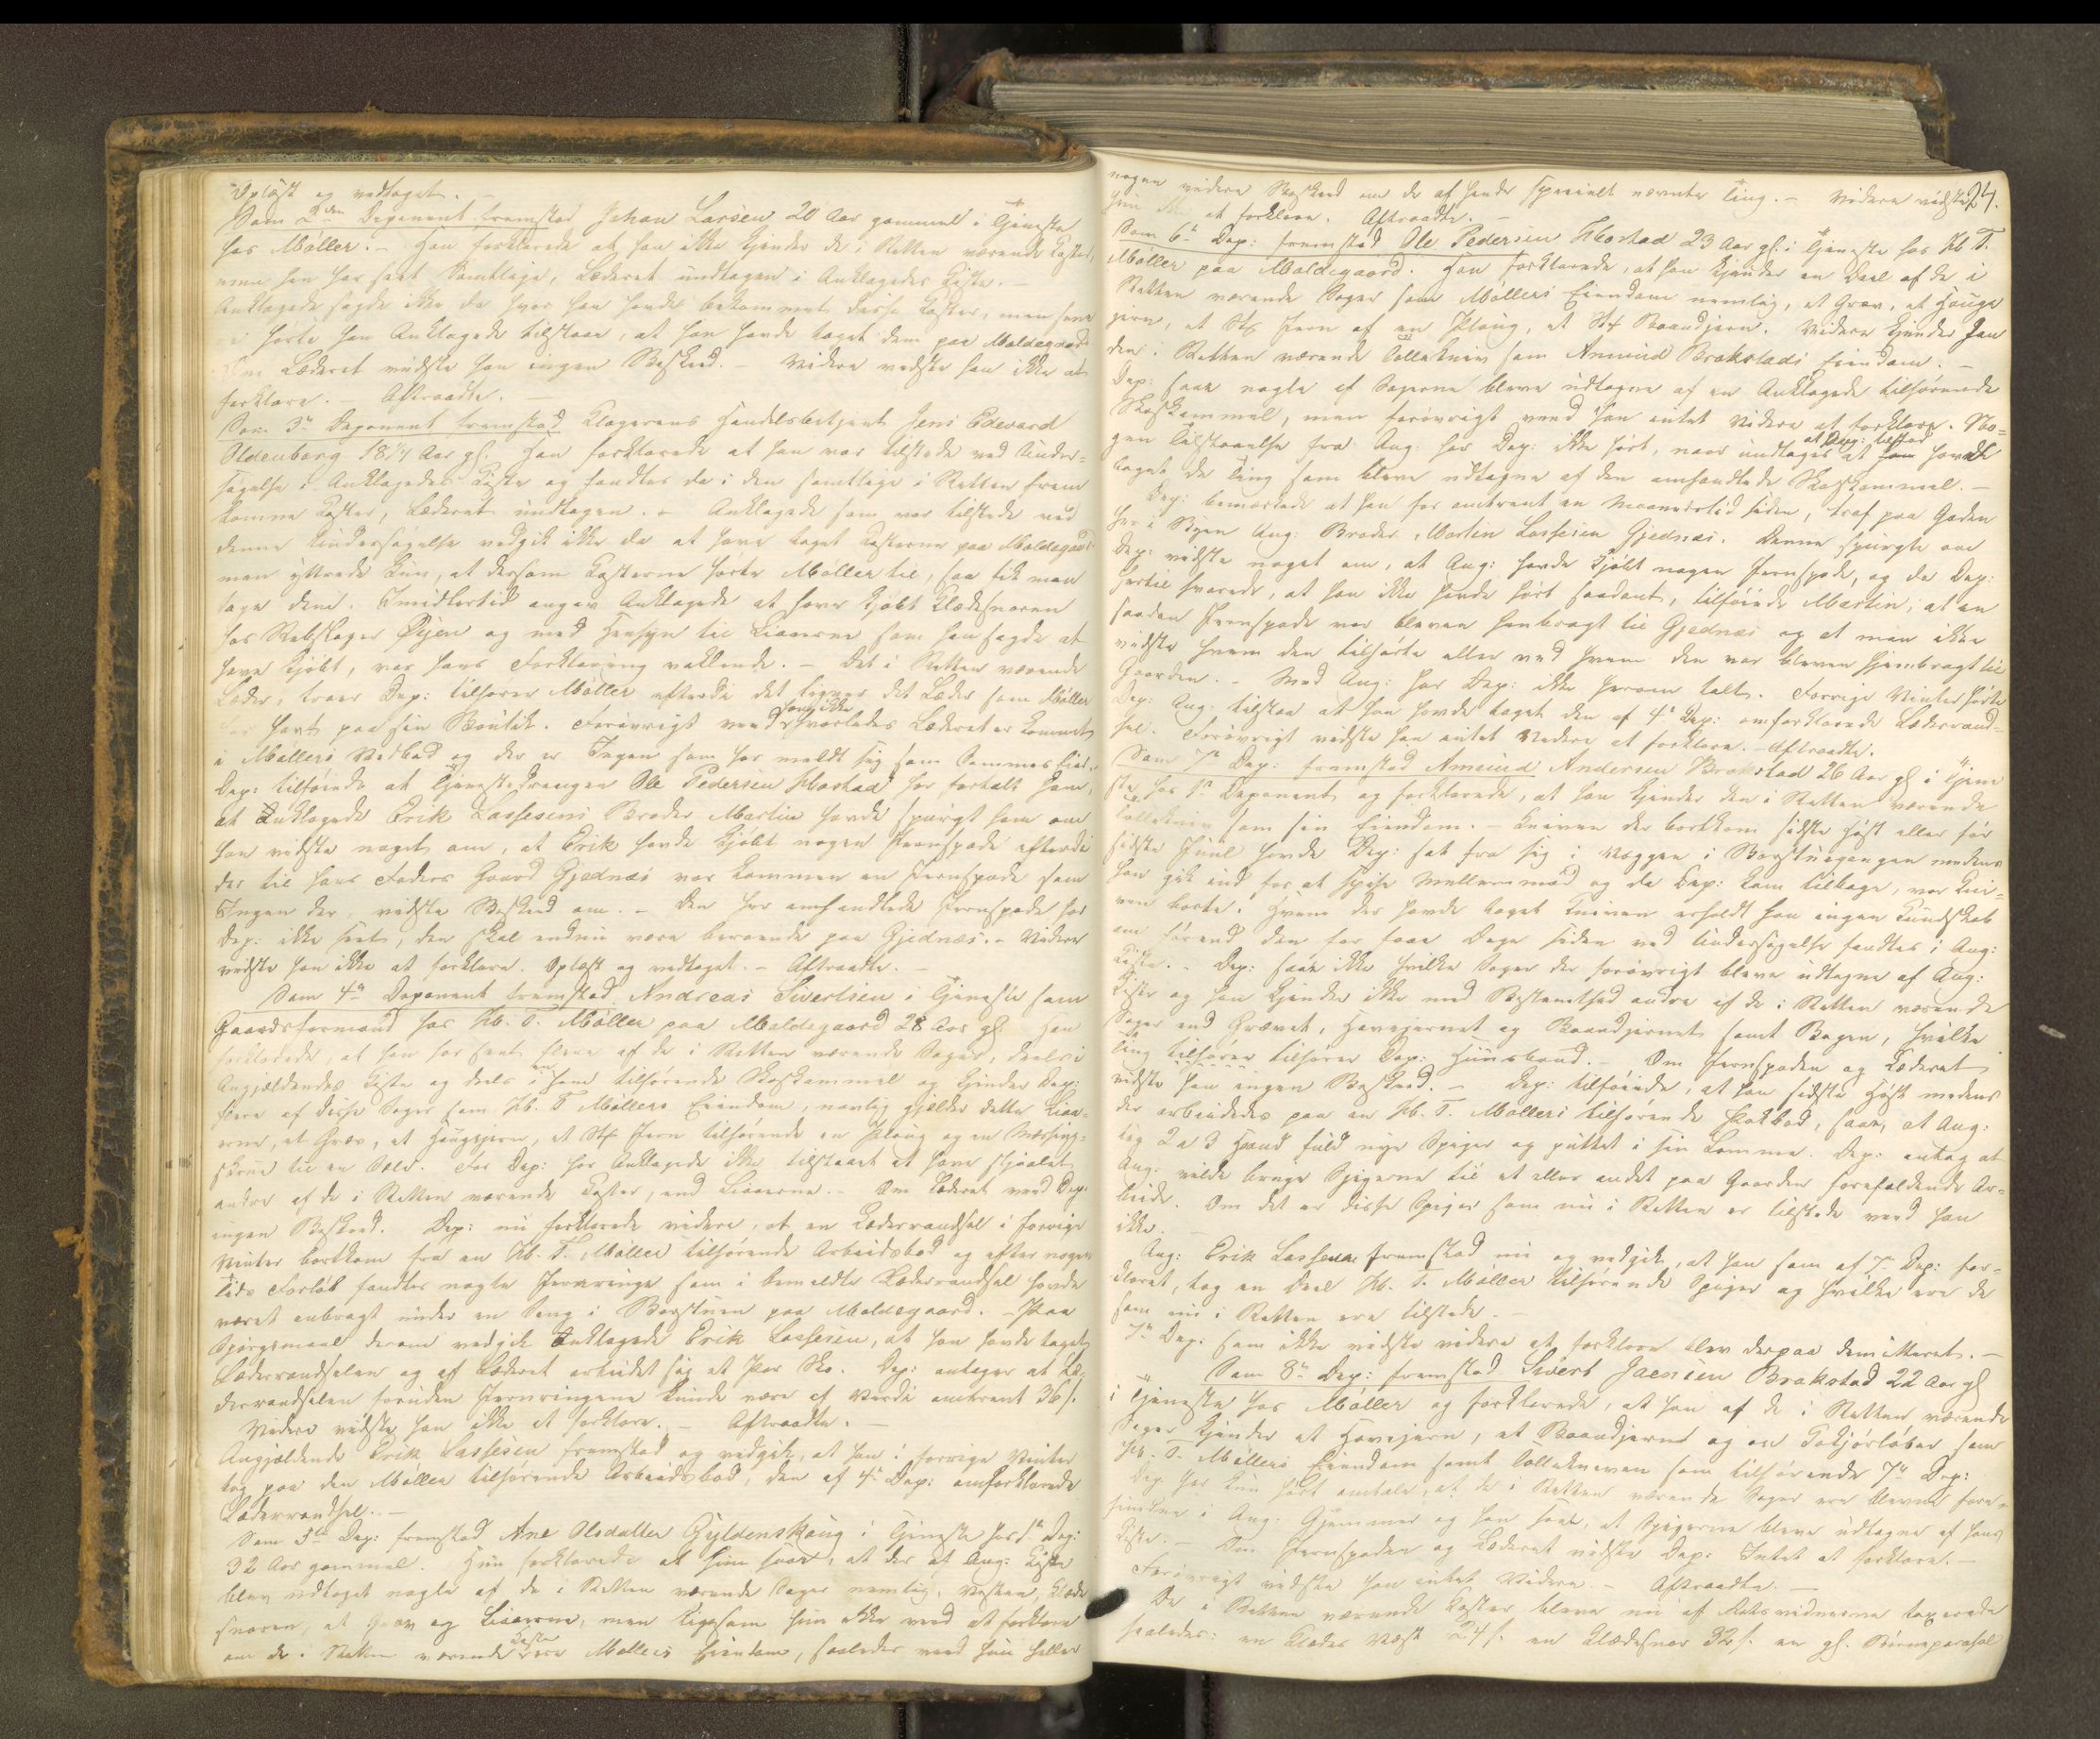 Oplæst og vedtaget. –
Som 2den Deponent fremstod Johan Larsen 20 Aar gammel i Tjeneste
hos Møller. – Han forklarede at han ikke kjender de i Retten værende Koster,
men han har seet samtlige, Læderet undtagen i Anklagedes Kiste. –
Anklagede sagde ikke da hvor han havde bekommet disse Koster, men senere
hørte han Anklagede tilstaae, at han havde taget dem paa Moldegaard
Om Læderet vidste han ingen Besked. – Videre vidste han ikke at
forklare. – Aftraadte. –
Som 3die Deponent fremstod Klagerens Handelsbetjent Jens Edevard
Oldenborg 18¼ Aar gl. Han forklarede at han var tilstede ved Under-
søgelse i Anklagedes Kiste og fandtes da i den samtlige i Retten frem
komne Koster, Læderet undtagen. – Anklagede som var tilstede ved
denne Undersøgelse vedgik ikke da at have taget Kosterne paa Moldegaard
men yttrede kun, at dersom Kosterne hørte Møller til, saa fik man
tage dem. Imidlertid angav Anklagede at have kjøbt Klædesnoren
hos Rebslager Øyen og med Hensyn til Liaaerne som han sagde at
have kjøbt, var hans Forklaring vaklende. – Det i Retten værende
Læder, troer Dep: tilhører Møller efterdi det ligner det Læder som Møller
har havt paa sin Boutik. Forøvrigt veed han ikke hvorledes Læderet er kommet
i Møllers Vedbod og der er Ingen som har meldt sig som Sammes Eier.
Dep: tilføiede at Tjenestedrengen Ole Pedersen Hostad har fortalt ham,
at Anklagede Erik Lassesens Broder Martin havde spurgt ham om
han vidste noget om, at Erik havde kjøbt nogen Jernspade efterdi
der til hans Faders Gaard Gjednæs var kommen en Jernspade som
Ingen der vidste Besked om. – Den her omhandlede Jernspade har
Dep: ikke seet, den skal endnu være beroende paa Gjednæs. – Videre
vidste han ikke at forklare. Oplæst og vedtaget. – Aftraadte. –
Som 4de Deponent fremstod Andreas Sivertsen i Tjeneste som
Gaardsformand hos Hb. T. Møller paa Moldegaard 28 Aar gl. Han
forklarede, at han har seet flere af de i Retten værende Sager, deels i
Angjældendes Kiste og deels i en ham tilhørende Skoskammel og kjender Dep:
flere af disse Sager som Hb. T Møllers Eiendom, navnlig gjælder dette Liaa-
erne, et Græv, et Haugejern, et Stk Jern tilhørende en Ploug og en Messing-
skrue til en Sele. For Dep: har Anklagede ikke tilstaaet at have stjaalet
andre af de i Retten værende Koster, end Liaaerne. – Om Læderet veed Dep.
ingen Besked. Dep: nu forklarede videre, at en Læderrandsel i forrige
Vinter bortkom fra en Hb. T. Møller tilhørende Arbeidsbod og efter nogen
Tids Forløb fandtes nogle Jernringe som i bemeldte Læderrandsel havde
været anbragt under en Seng i Borstuen paa Moldegaard. – Paa
Spørgsmaal derom vedgik Anklagede Erik Lassesen, at han havde taget
Læderrandselen og af Læderet arbeidet sig et Par Sko. Dep: antager at Læ-
derrandselen foruden Jernringene kunde være af Værdi omtrent 36 s.
Videre vidste han ikke at forklare. – Aftraadte. –
Angjældende Erik Lassesen fremstod og vedgik, at han i forrige Vinter
tog paa den Møller tilhørende Arbeidsbod, den af 4de Dep: omforklarede
Læderrandsel. –
Som 5te Dep: fremstod Ane Olsdatter Gyldenskoug i Tjeneste hos 1ste Dep:
32 Aar gammel. Hun forklarede at hun saae, at der af Ang: Kiste
blev udtaget nogle af de i Retten værende Sager nemlig, Vesten, Klæde
snoren, et Græv og Liaaerne, men ligesom hun ikke veed at forklare
om de i Retten værende Koster ere Møllers Eiendom, saaledes veed hun heller
24.
nogen videre Besked om de af hende specielt nævnte Ting. – Videre vidste
hun ikke at forklare. Aftraadte. –
Som 6te Dep: fremstod Ole Pedersen Hostad 23 Aar gl. i Tjeneste hos Hb. T.
Møller paa Moldegaard. Han forklarede, at han kjender en Deel af de i
Retten værende Sager som Møllers Eiendom nemlig, et Græv, et Hauge
jern, et Stk Jern af en Ploug, et Stk Baandjern. Videre kjender han
den i Retten værende Tollekniv som Amund Brokstads Eiendom. –
Dep: saae nogle af Sagerne bleve udtagne af en Anklagede tilhørende
Skoskammel, men forøvrigt veed han intet videre at forklare. No-
gen Tilstaaelse fra Ang: har Dep: ikke hørt, naar undtages at Ang: tilstod at han havde
taget de Ting som bleve udtagne af den omhandlede Skoskammel. –
Dep: bemærkede at han for omtrent en Maanedstid siden, traf paa Gaden
her i Byen Ang: Broder, Martin Lassesen Gjednæs. Denne spurgte om
Dep: vidste noget om, at Ang: havde kjøbt nogen Jernspade, og da Dep:
hertil svarede, at han ikke havde hørt saadant, tilføiede Martin, at en
saadan Jernspade var bleven henbragt til Gjednæs og at man ikke
vidste hvem den tilhørte eller ved hvem den var bleven hjembragt til
Gaarden. – Med Ang: har Dep: ikke herom talt. Forrige Vinter hørte
Dep: Ang: tilstaa at han havde taget den af 4de Dep: omforklarede Læderrand-
sel. Forøvrigt vidste han intet Videre at forklare. – Aftraadte.
Som 7de Dep: fremstod Amund Andersen Brokstad 26 Aar gl i Tjene
ste hos 1ste Deponent og forklarede, at han kjender den i Retten værende
Tollekniv som sin Eiendom. – Kniven der bortkom sidste Høst eller før
sidste Juul havde Dep: sat fra sig i Væggen i Borstuegangen medens
han gik ind for at spise Mellemmad og da Dep: kom tilbage, var Kni-
ven borte. Hvem der havde taget Kniven erholdt han ingen Kundskab
om førend den for faae Dage siden ved Undersøgelse fandtes i Ang:
Kiste. – Dep: saae ikke hvilke Sager der forøvrigt bleve udtagne af Ang:
Kiste og han kjender ikke med Bestemthed andre af de i Retten værende
Sager end Grævet, Havejernet og Baandjernet samt Bogen, hvilke
Ting tilhører tilhører Dep: Huusbond. – Om Jernspaden og Læderet
vidste han ingen Besked. – Dep: tilføiede, at han sidste Høst medens
der arbeidedes paa en Hb. T. Møllers tilhørende Pakbod, saae, at Ang:
tog 2 a 3 Haand fuld nye Spiger og puttet i sin Lomme. Dep: antog at
Ang: vilde bruge Spigerne til et eller andet paa Gaarden forefaldende Ar-
beide. Om det er disse Spiger som nu i Retten er tilstede veed han
ikke.
Ang: Erik Lassesen fremstod nu og vedgik, at han som af 7de Dep: for-
klaret, tog en Deel Hb. T. Møller tilhørende Spiger og hvilke ere de
som nu i Retten ere tilstede. –
7de Dep. som ikke vidste videre at forklare blev derpaa demitteret. –
Som 8de Dep: fremstod Sivert Jacosen Brokstad 22 Aar gl
i Tjeneste hos Møller og forklarede, at han af de i Retten værende
Sager kjender et Havejern, et Baandjern og en som
Hb. T. Møllers Eiendom samt Tollekniven som tilhørende 7de Dep:
Dep. har kun hørt omtale, at de i Retten værende Sager ere blevne fore-
fundne i Ang: Gjemmer og han saae, at Spigerne bleve udtagne af hans
Kiste. – Om Jernspaden og Læderet vidste Dep: Intet at forklare. –
Forøvrigt vidste han intet Videre. – Aftraadte. –
De i Retten værende Koster bleve nu af Retsvidnerne taxerede
saaledes: en Klædes Vest 24 s. en Klædesnor 32 s. en gl.